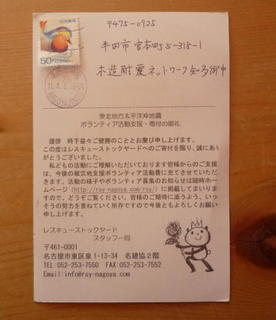 〒475-0925
半田市宮本町5-318-1
木造耐震ネットワーク知多御中
50
東北地方太平洋沖地震
ボランティア活動支援・寄付の御礼
謹啓 時下益々ご健勝のこととお慶び申し上げます。
この度はレスキューストックヤードへのご寄付を賜り、誠にあり
がとうございました。
私どもの活動にご理解いただいております皆様からのご支援
は、今後の被災地支援ボランティア活動費に充てさせていただ
きます。活動の様子やボランティア募集のお知らせは随時ホーム
ページ(http://rsy-nagoya.com/rsy/)に掲載いたしますの
で、どうぞご覧ください。皆様のご期待に添うよう、いっ
そうの努力を重ねていく所存ですので今後ともよろしくお願い
申し上げます。
レスキューストックヤード
スタッフ一同
〒461-0001
名古屋市東区泉1-13-34 名建協2階
TEL 052-253-7550 FAX 052-253-7552
Email info@rsy-nagoya.com